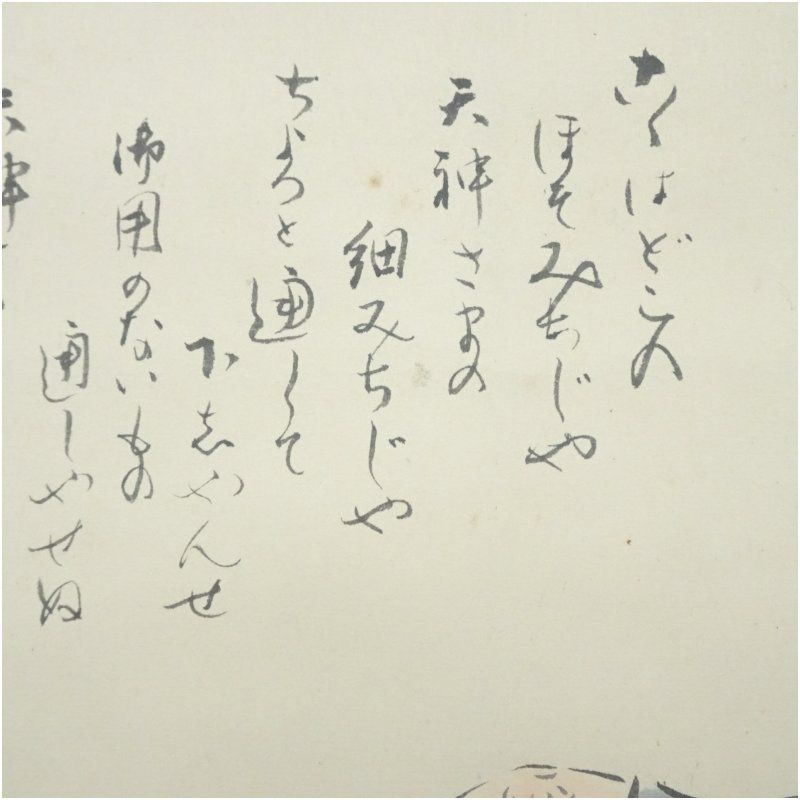 こゝはどこの
ほそみちじや
天神さまの
細みちじや
ちよつと通して
下しやんせ
御用のないもの
通しやせぬ
天神